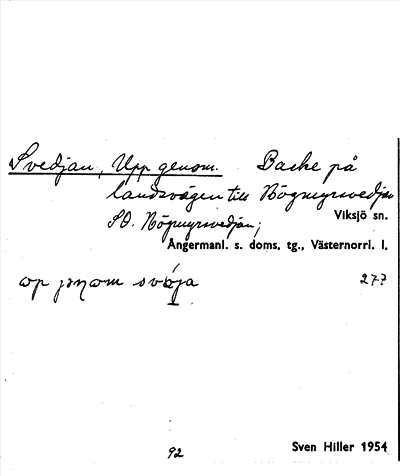 Svedjan, Upp genom. Backe på
landsvägen till Högmyrsvedjan
SO. Högmyrsvedjan;
Viksjö sn.
Ångermanl. s. doms. tg., Västernorrl. l.
op jenom svǝja
277
92
Sven Hiller 1954